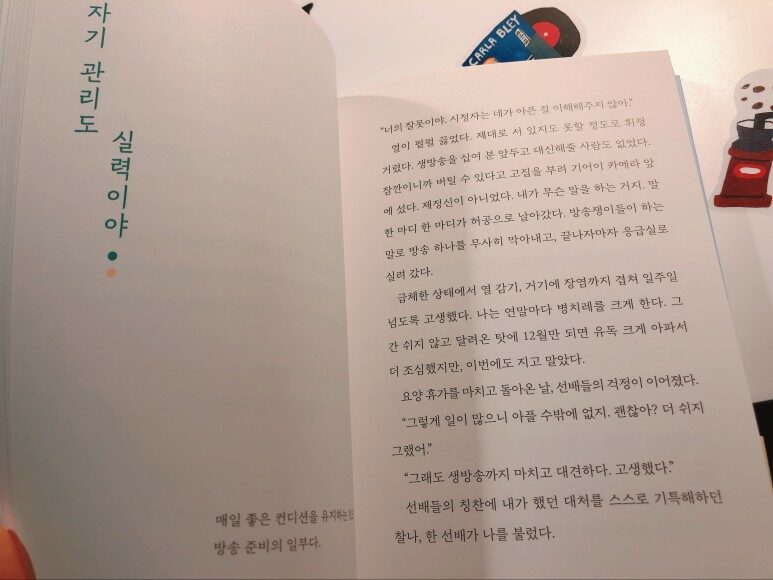 자기 관리도
실력이야
매일 좋은 컨디션을 유지하는
방송 준비의 일부다.
CARLA BLEY
"너의 잘못이야. 시청자는 네가 아픈 걸 이해해주지 않아."
열이 펄펄 끓었다. 제대로 서 있지도 못할 정도로 휘청
거렸다. 생방송을 십여 분 앞두고 대신해줄 사람도 없었다.
잠깐이니까 버틸 수 있다고 고집을 부려 기어이 카메라 앞
에 섰다. 제정신이 아니었다. 내가 무슨 말을 하는 거지. 말
한 마디 한 마디가 허공으로 날아갔다. 방송쟁이들이 하는
말로 방송 하나를 무사히 막아내고, 끝나자마자 응급실로
실려 갔다.
급체한 상태에서 열 감기, 거기에 장염까지 겹쳐 일주일
넘도록 고생했다. 나는 연말마다 병치레를 크게 한다. 그
간 쉬지 않고 달려온 탓에 12월만 되면 유독 크게 아파서
더 조심했지만, 이번에도 지고 말았다.
요양 휴가를 마치고 돌아온 날, 선배들의 걱정이 이어졌다.
"그렇게 일이 많으니 아플 수밖에 없지. 괜찮아? 더 쉬지
그랬어."
"그래도 생방송까지 마치고 대견하다. 고생했다."
선배들의 칭찬에 내가 했던 대처를 스스로 기특해하던
찰나, 한 선배가 나를 불렀다.